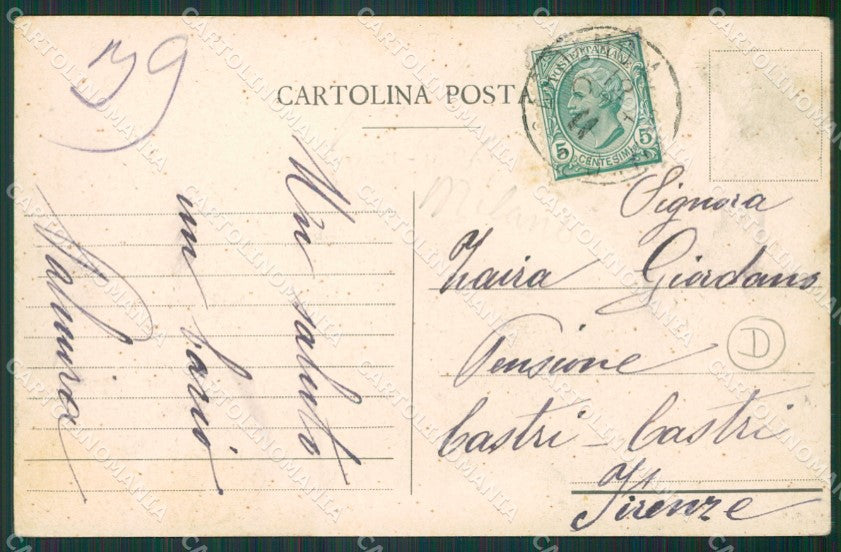 139
CARTOLINA POSTA
POSTE ITALIANE
5 CENTESIMI 5
Milano
Un saluto
un bacio
Palmira
Signora
Zaira Giordano
Pensione
Castri-Castri
Firenze
D
CARTOLINOMANIA